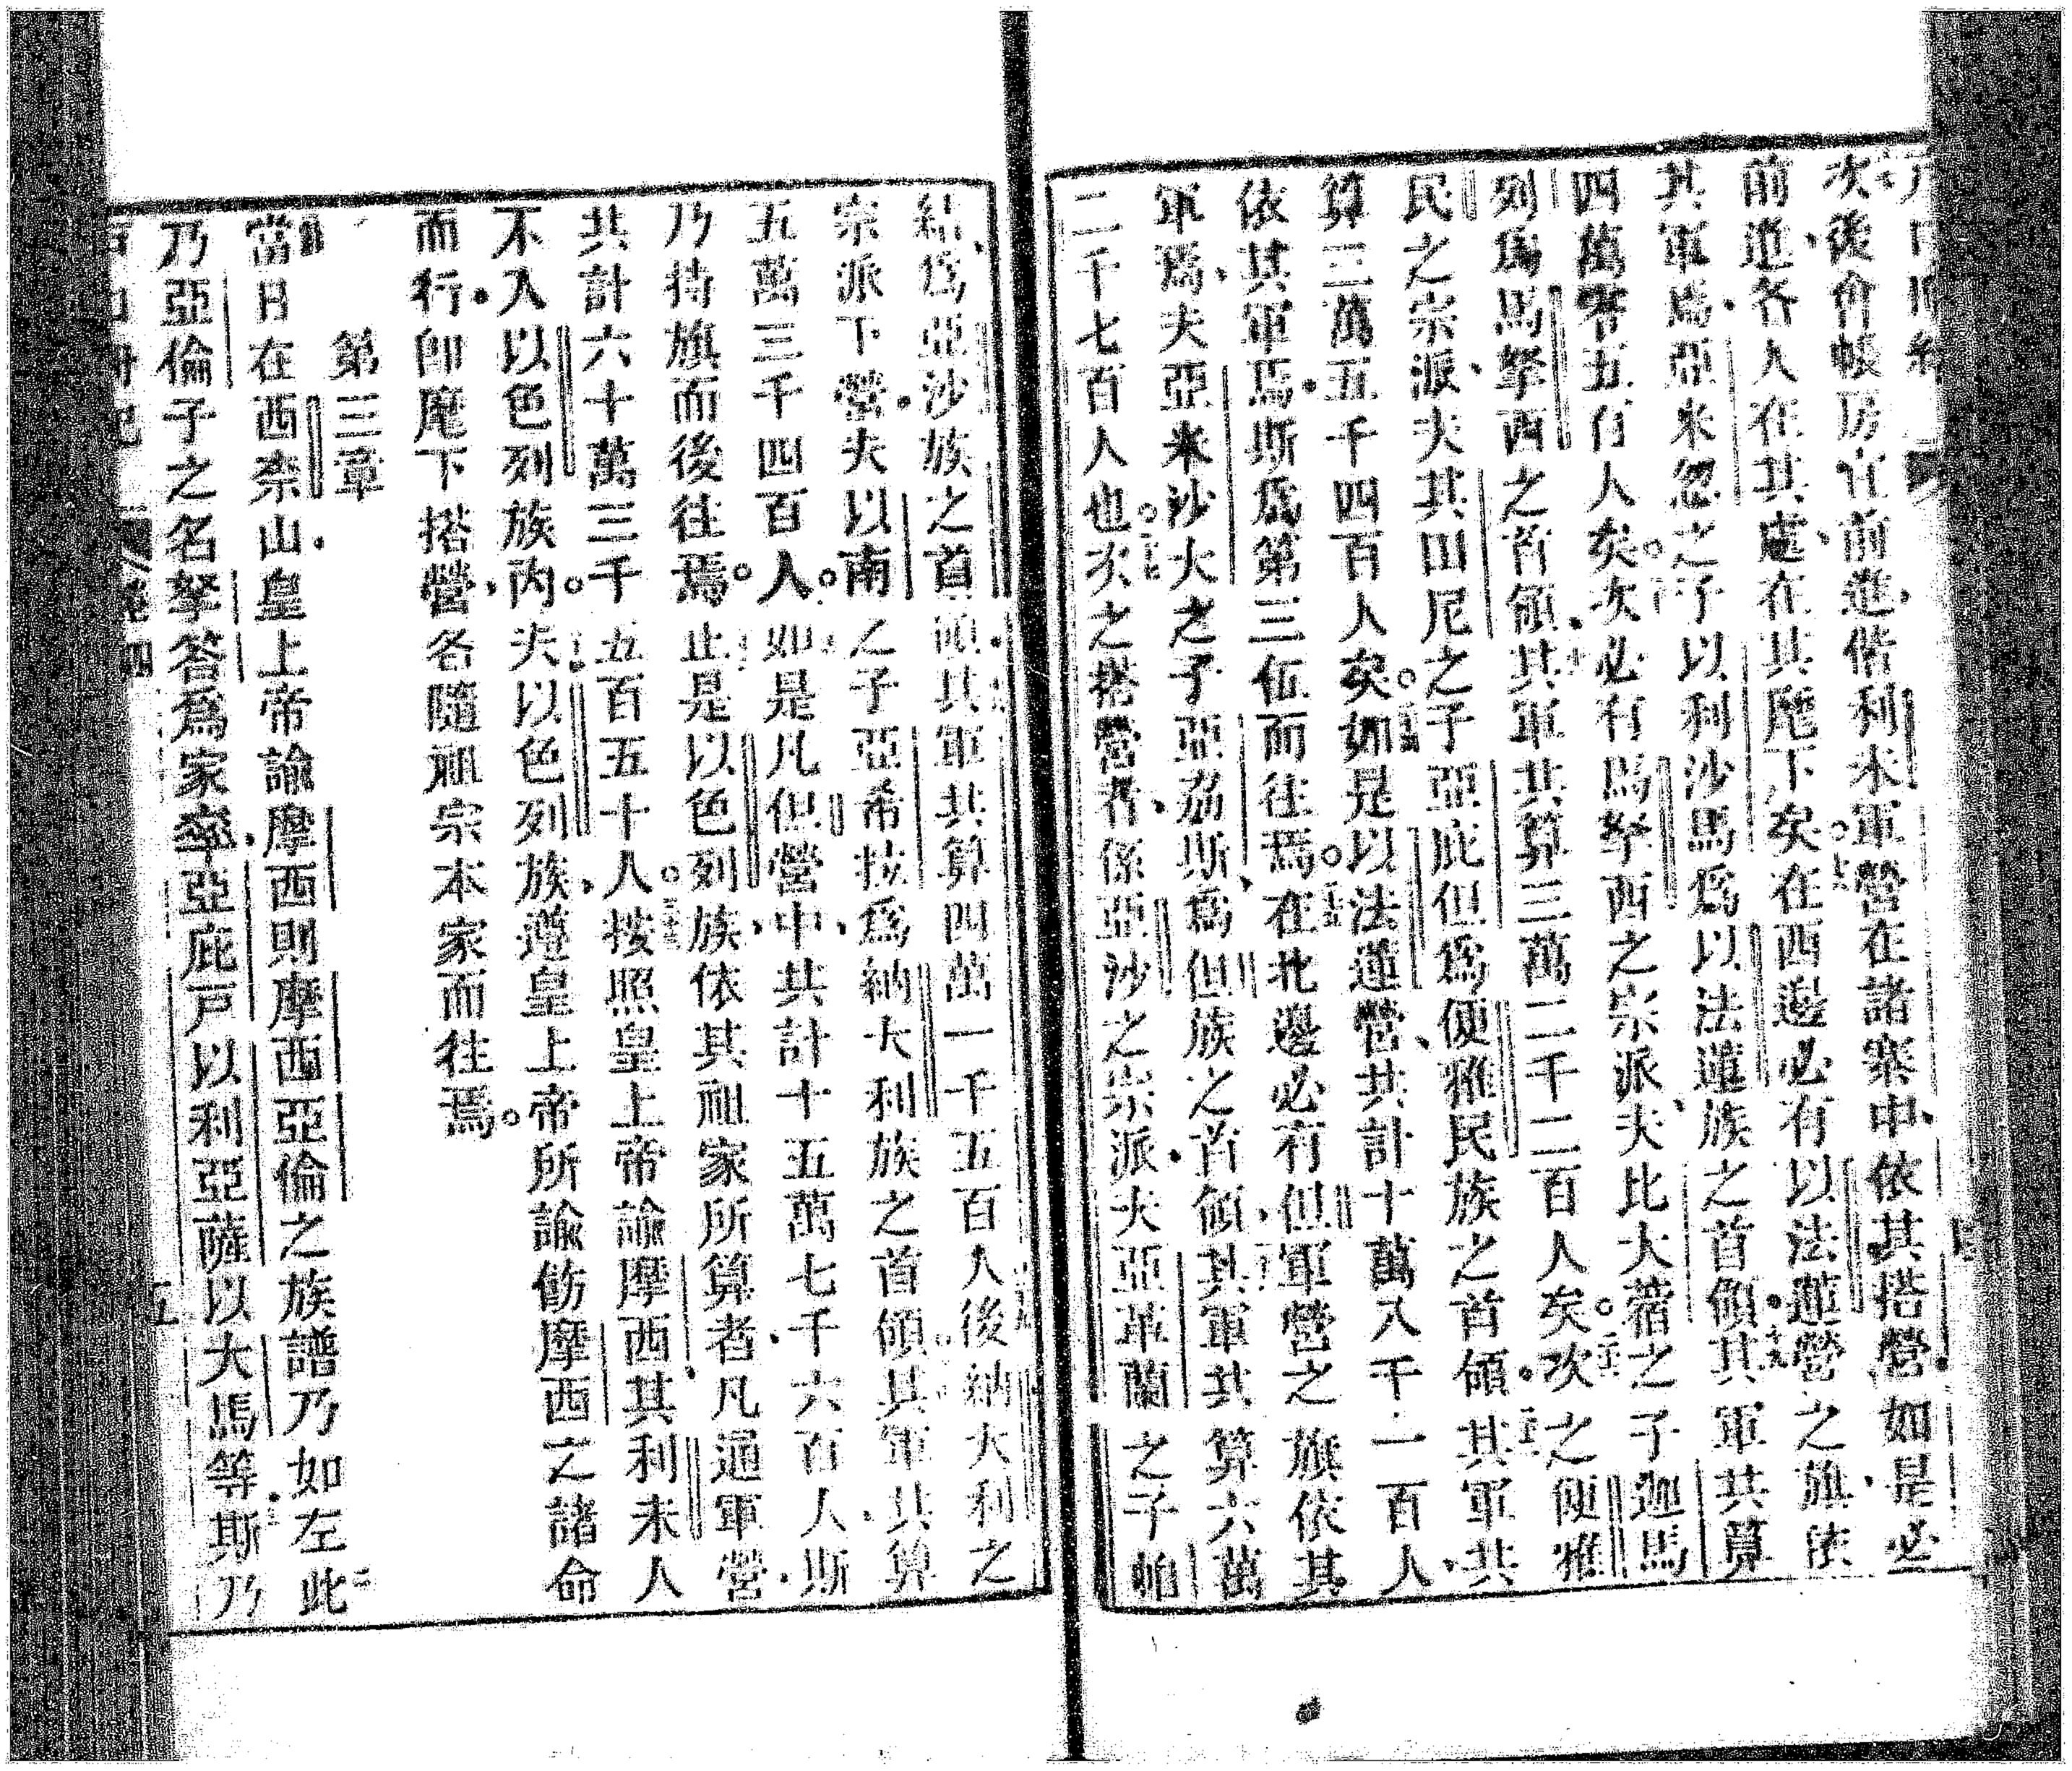 次後會帳房宜前進偕利未軍營在諸寨中、依其搭營、如是必
前進、各人在其處、在其麾下矣。在西邊必有以法蓮營之旗、依
其軍焉、亞米忽之子以利沙馬為以法蓮族之首領、其軍共算
四萬零五百人矣。次必有馬拏西之宗派、夫比大蓿之子迦馬
列為馬拏西之首領、其軍共算三萬二千二百人矣。次之便雅
民之宗派、夫其田尼之子亞庇但為便雅民族之首領、其軍共
算三萬五千四百人矣。如是以法蓮營、共計十萬八千一百人、
依其軍焉、斯為第三伍而往焉。在北邊必有但軍營之旗、依其
軍焉、夫亞米沙大之子亞希斯為但族之首領、其軍共算六萬
二千七百人也。次之搭營者、係亞沙之宗派、夫亞革蘭之子帕
結為亞沙族之首領、其軍共算四萬一千五百人後納大利之
宗派下營、夫以南之子亞希拉為納大利族之首領其軍共算
五萬三千四百人。如是凡但營中、共計十五萬七千六百人、斯
乃持旗而後往焉。止是以色列族、依其祖家所算者、凡通軍營、
共計六十萬三千五百五十人。按照皇上帝諭摩西、其利未人
不入以色列族內。夫以色列族、遵皇上帝所諭飭摩西之諸命
而行、即麾下搭營、各隨祖宗本家而往焉。
第三章
當日在西奈山、皇上帝諭摩西、則摩西亞倫之族譜乃如左、此
乃亞倫子之名、拏答為家率、亞庇戶以利亞薩以大馬等、斯乃
戶口冊紀 卷四 五